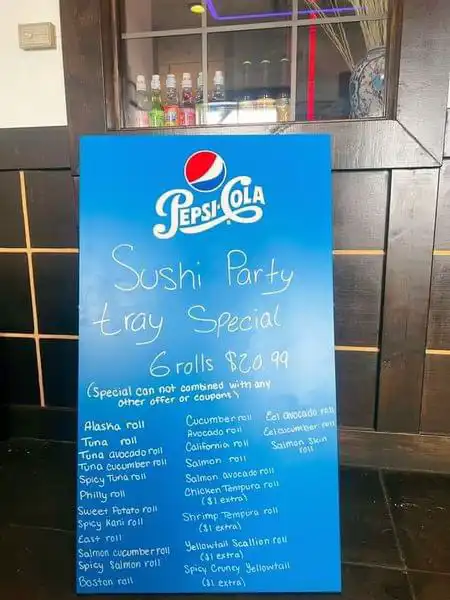 PEPSI-COLA
Sushi Party
tray Special
6 rolls $20.99
(Special can not combined with any
other offer or coupons)
Alaska roll
Tuna roll
Tuna avocado roll
Tuna cucumber roll
Spicy Tuna roll
Philly roll
Sweet Potato roll
Spicy Kani roll
East roll
Salmon cucumber roll
Spicy Salmon roll
Boston roll
Cucumber roll
Avocado roll
California roll
Salmon roll
Salmon avocado roll
Chicken Tempura roll
($1 extra)
Shrimp Tempura roll
($1 extra)
Yellowtail Scallion roll
($1 extra)
Spicy Cruncy Yellowtail
($1 extra)
Eel avocado roll
Eel cucumber roll
Salmon Skin
roll